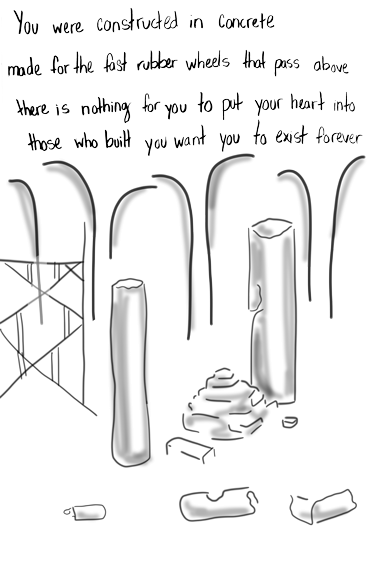 You were constructed in concrete
made for the fast rubber wheels that pass above
there is nothing for you to put your heart into
those who built you want you to exist forever